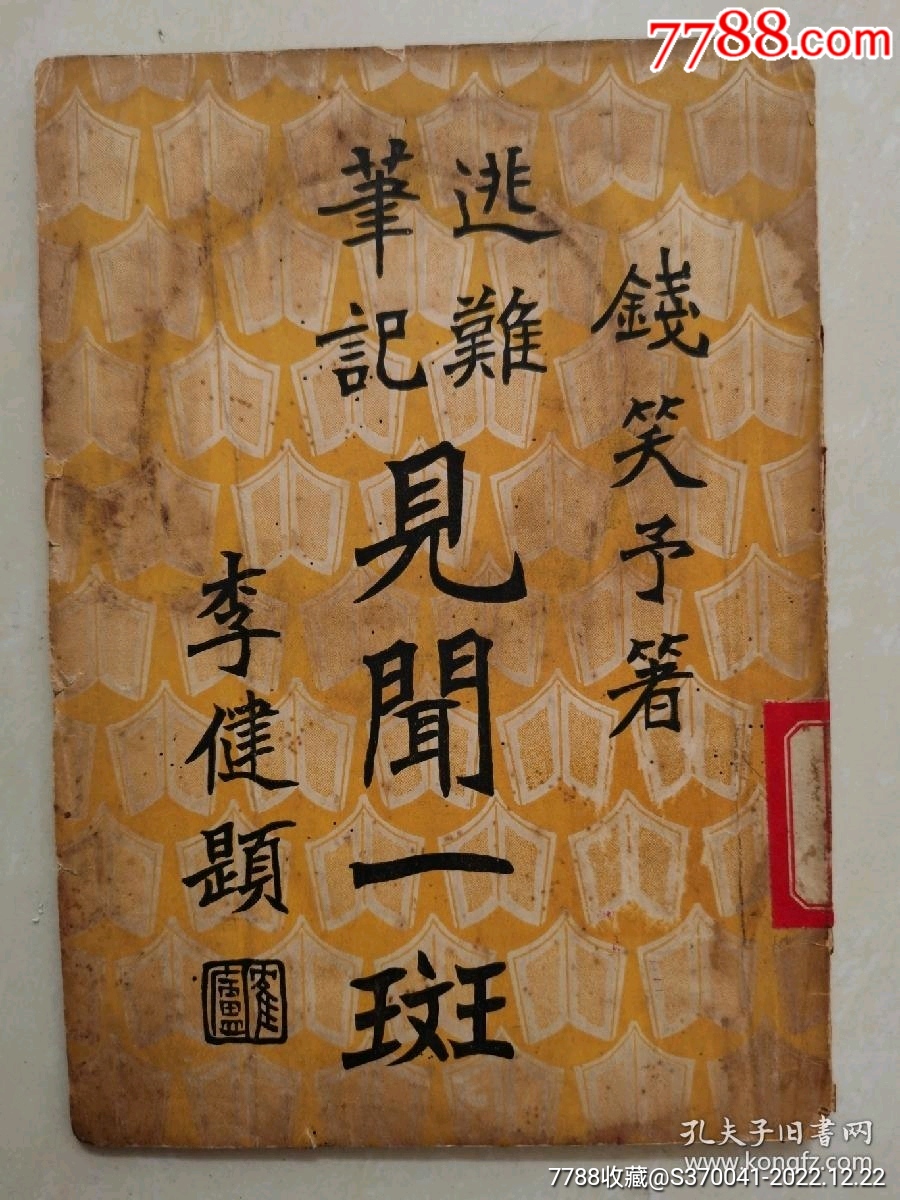 7788.com
錢笑予著
逃難
筆記
見聞一斑
李健題
孔夫子旧書网
www.kongfz.com
7788收藏@S370041-2022.12.22